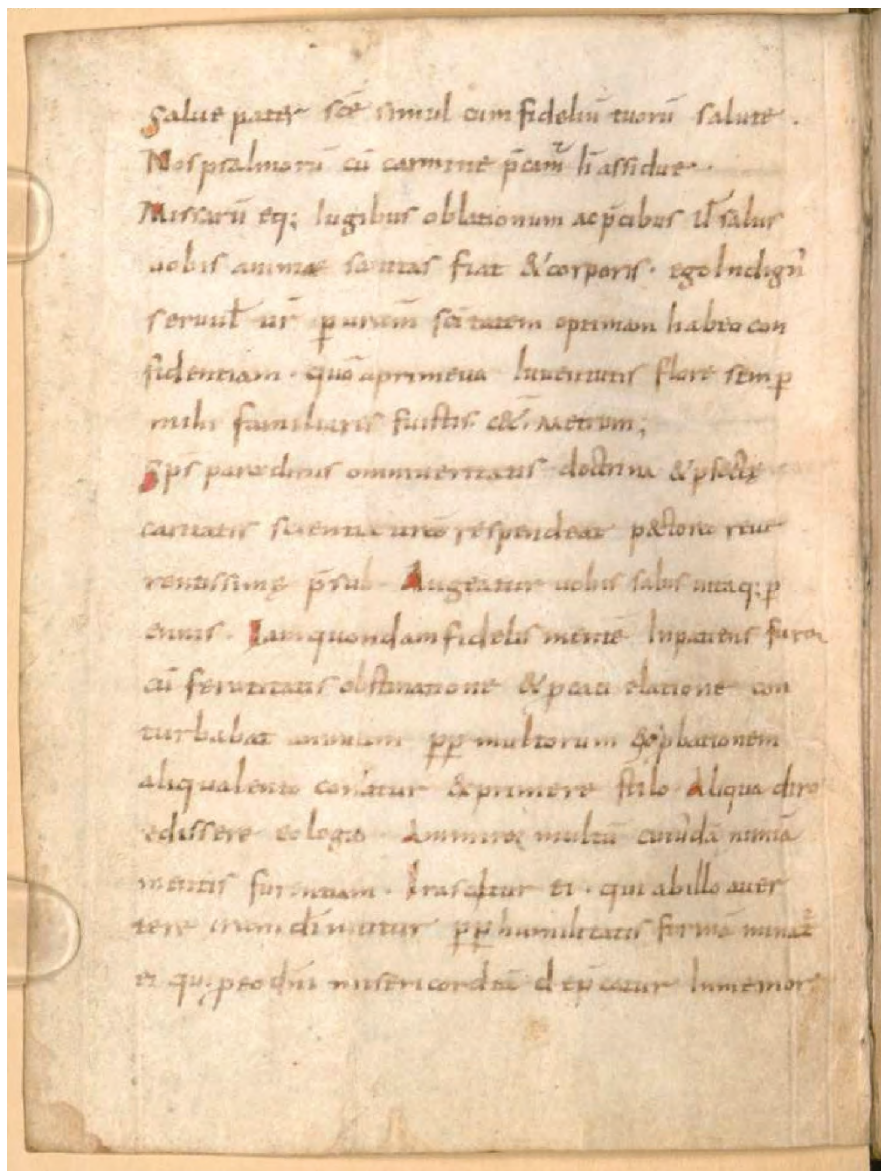 Salue pater sc̄e simul cum fideliū tuorū salute .
Nos psalmorū cū carmine p̄cam̄ʳ hī assidue .
Missarū eq; Iugibus oblationum ac p̄cibus ut̄ salus
uobis animae sanitas fiat & corporis . ego Indignꝰ
seruul̄ ur̄ ꝑ uram̄ sc̄itatem optimam habeo con
fidentiam . quo aprimeua Iuuentutis flore semꝑ
mihi familiaris fuistis. & Metrum;
Sp̄s paraclitus omni ueritatis doctrina & ꝑfectę
caritatis scientia uro respendeat pectore reue
rentissimę p̄sul . Augeatur uobis salus uitaq; ꝑ
ennis . Iam quondam fidelis mentē Inpatiens furor
cū feruitatis obstinatione & elatione con
turbabat animum ꝓꝑ multorum &ꝓbationem
aliqualento conatur &primere stilo Aliqua diro
edissere eologio Ammiror multū cuiꝰdā nimiā
mentis furentiam . Irascitur ei . qui ab illo auer
tere iram ꝓꝑ humilitatis formā
ei quipeo dn̄i misericordiā dep̄catur Inmemor